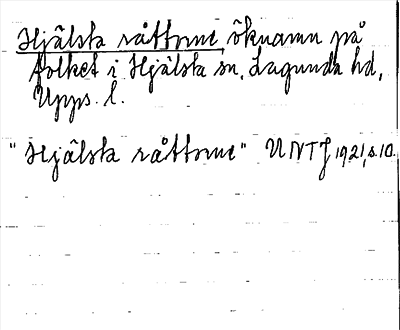 Hjälsta råttorne, öknamn på
folket i Hjälsta sn, Lagunda hd,
Upps. l.
"Hjälsta råttorne" UNTJ 1921, s. 10.